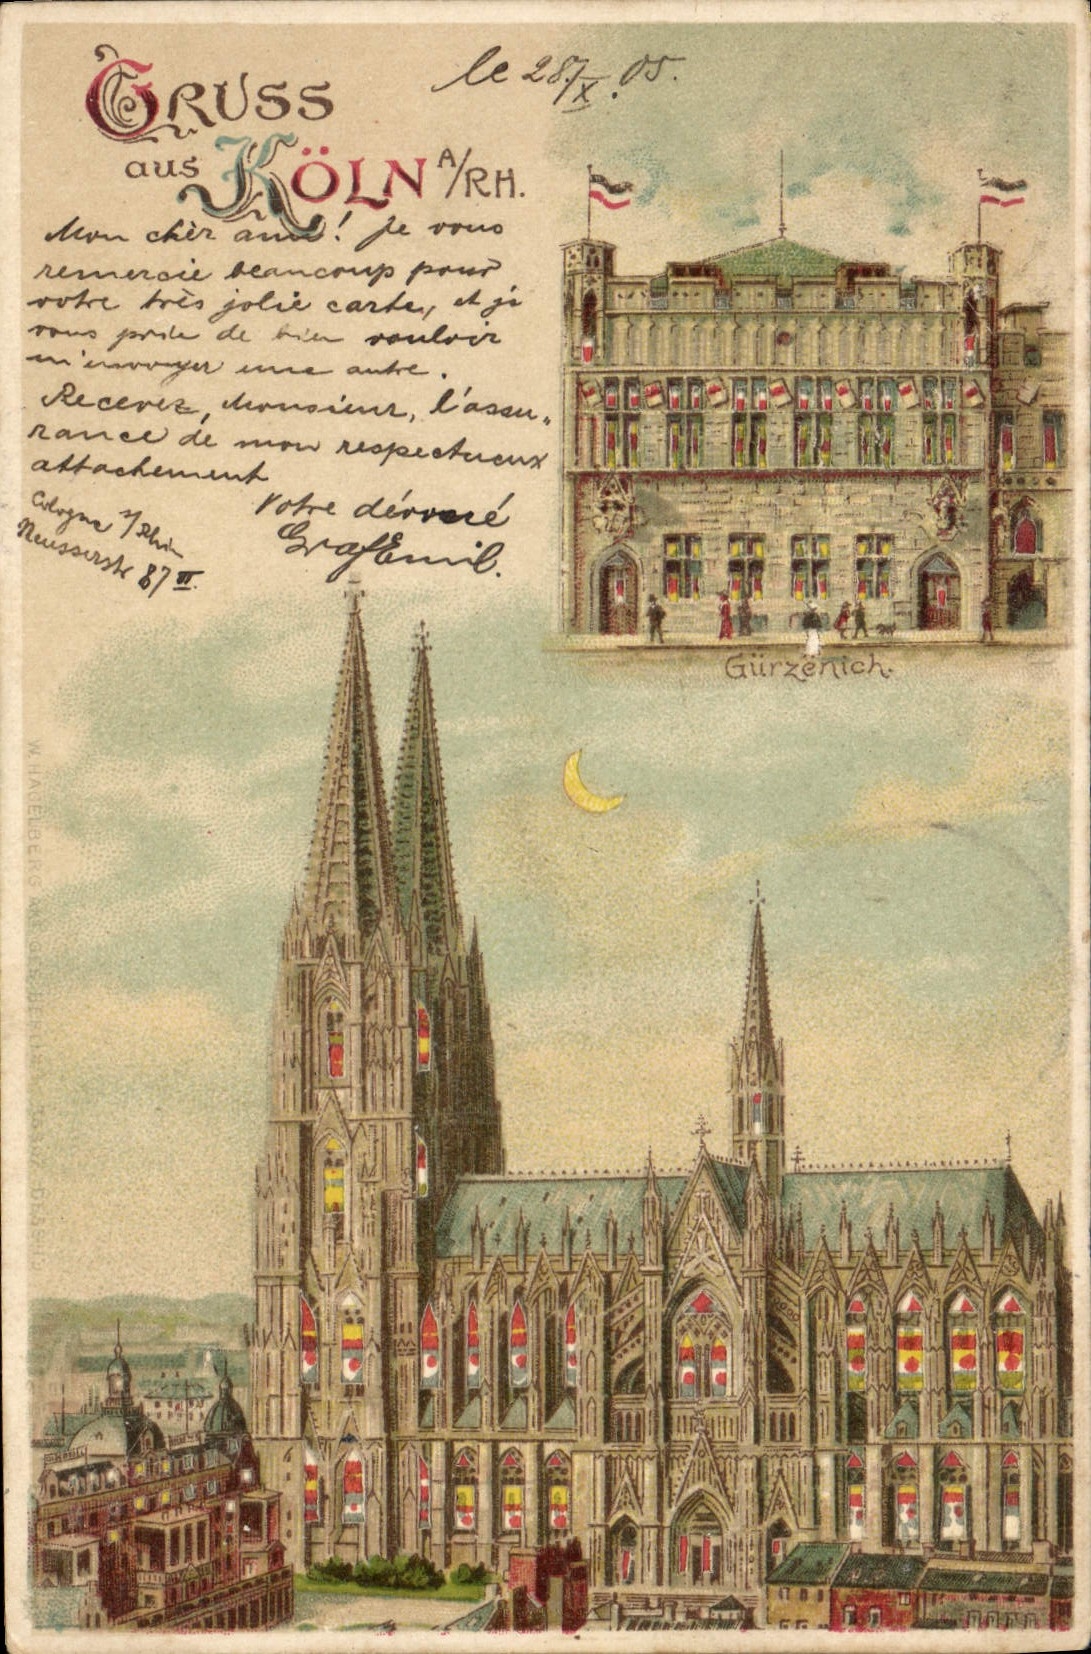 GRUSS
aus KÖLN A/RH.
le 28/X. 05.
Mon chèr ami! Je vous
remercie beaucoup pour
votre très jolie carte, et je
vous prie de bien vouloir
m'envoyer une autre.
Recevez, Monsieur, l'assu„
rance de mon respectueux
attachement
Votre dévoué
Graf Emil.
Cologne s/Rhin
Neusserstr 87 III.
Gürzenich.
W. HAGELBERG